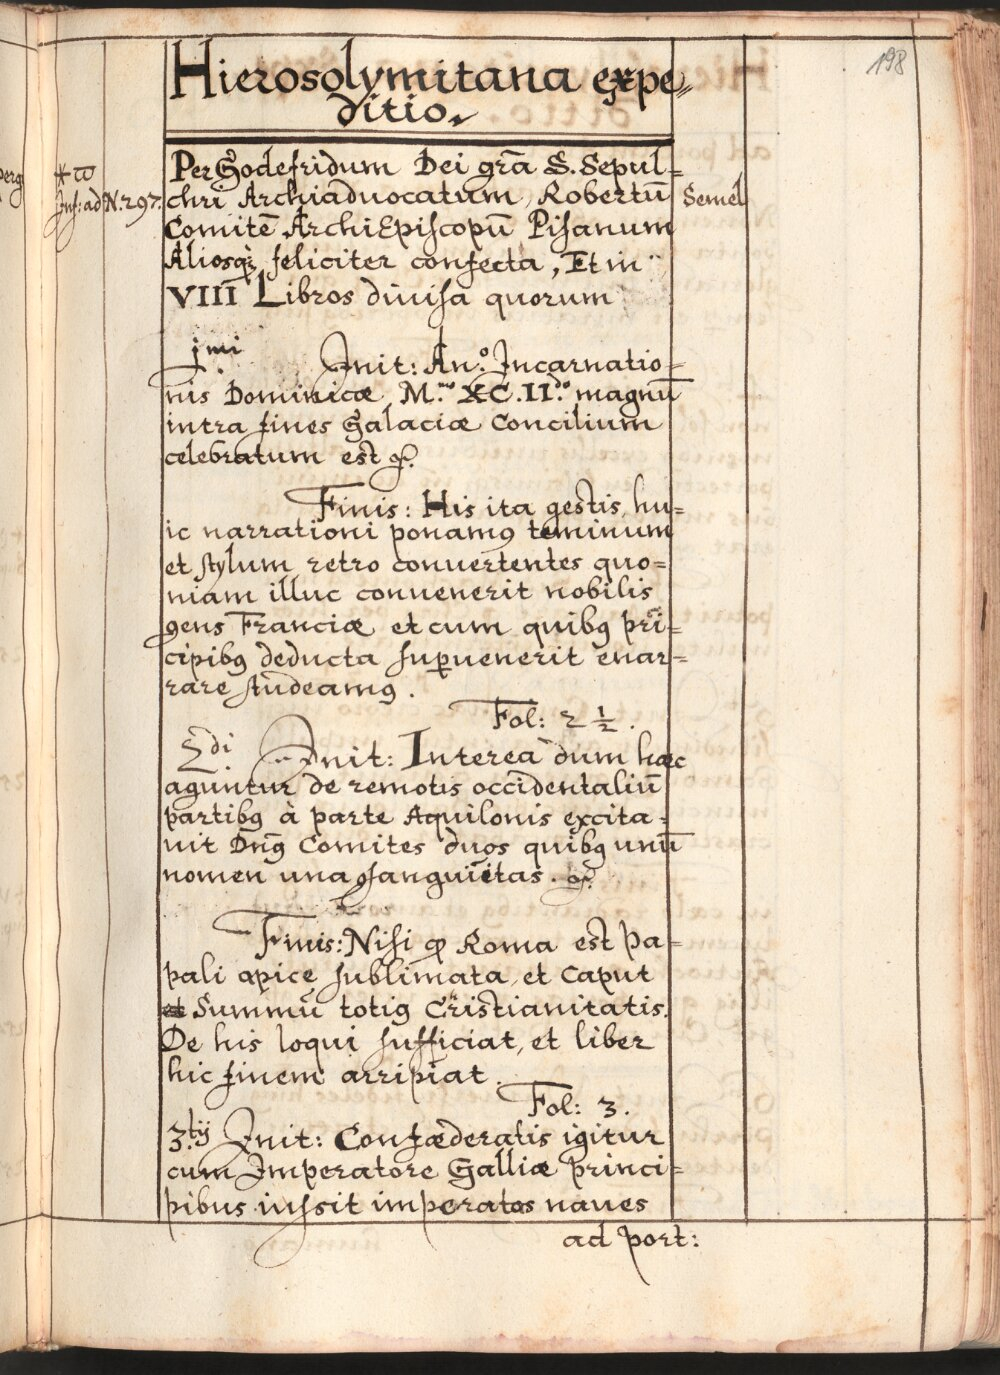 198
Hierosolymitana expe=
ditio.
Per Godefridum Dei grã S. Sepul=
chri Archiaduocatum, Robertũ
Semel
Inf: ad N. 297.
Comitẽ ArchiEpiscopũ Pisanum
Aliosq; feliciter confecta, Et in
VIII Libros diuisa quorum
jmi
Init: An.º Incarnatio=
nis Dominicæ M.mo XC.II.do magnũ
intra fines Galaciæ Concilium
celebratum est &.
Finis: His ita gestis hu=
ic narrationi ponamꝰ teminum
et stylum retro conuertentes quo=
niam illuc conuenerit nobilis
gens Franciæ et cum quibꝰ pri=
cipibꝰ deducta suꝑuenerit enar=
rare studeamꝰ.
Fol: 2 ½.
2di Init: Interea dum hæc
aguntur de remotis occidentaliũ
partibꝰ à parte Aquilonis excita=
uit Dnꝰ Comites duos quibꝰ unũ
nomen una ꝯsanguietas. &.
Finis: Nisi qꝫ Roma est pa=
pali apice sublimata, et Caput
et Summũ totiꝰ Cristianitatis.
De his loqui sufficiat, et liber
hic finem arripiat.
Fol: 3.
3.tij Init: Confæderatis igitur
cum Imperatore Galliæ princi=
pibus iussit imperatos naues
ad port: